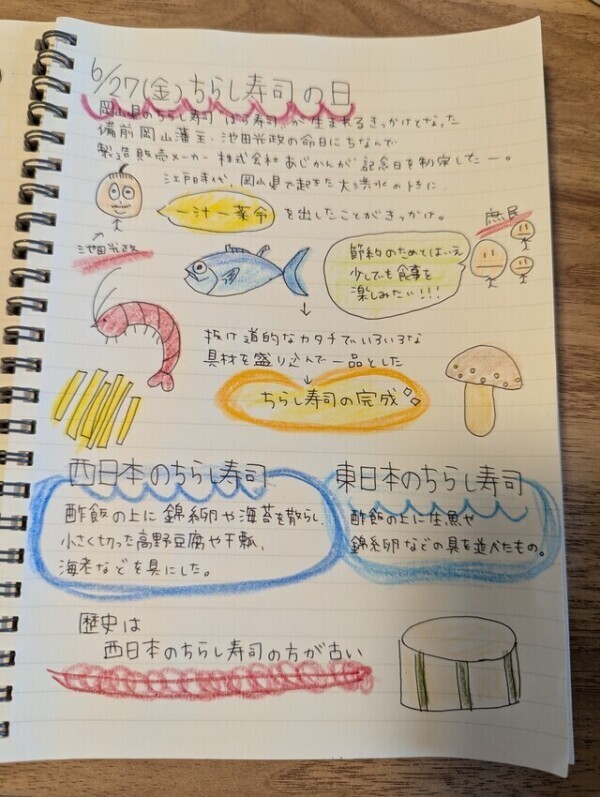 6/27(金)ちらし寿司の日
岡山県のちらし寿司"ばら寿司"が生まれるきっかけとなった
備前岡山藩主・池田光政の命日にちなんで
製造販売メーカー 株式会社あじかんが記念日を制定したー。
江戸時代、岡山県で起きた大洪水のトキに
一汁一菜令 を出したことがきっかけ。
庶民
池田光政
節約のためとはいえ
少しでも食事を
楽しみたい!!!
↓
抜け道的なカタチでいろいろな
具材を盛り込んで一品とした
↓
ちらし寿司の完成
西日本のちらし寿司
酢飯の上に錦糸卵や海苔を散らし、
小さく切った高野豆腐や干瓢、
海老などを具にした。
東日本のちらし寿司
酢飯の上に生魚や
錦糸卵などの具を並べたもの。
歴史は
西日本のちらし寿司の方が古い